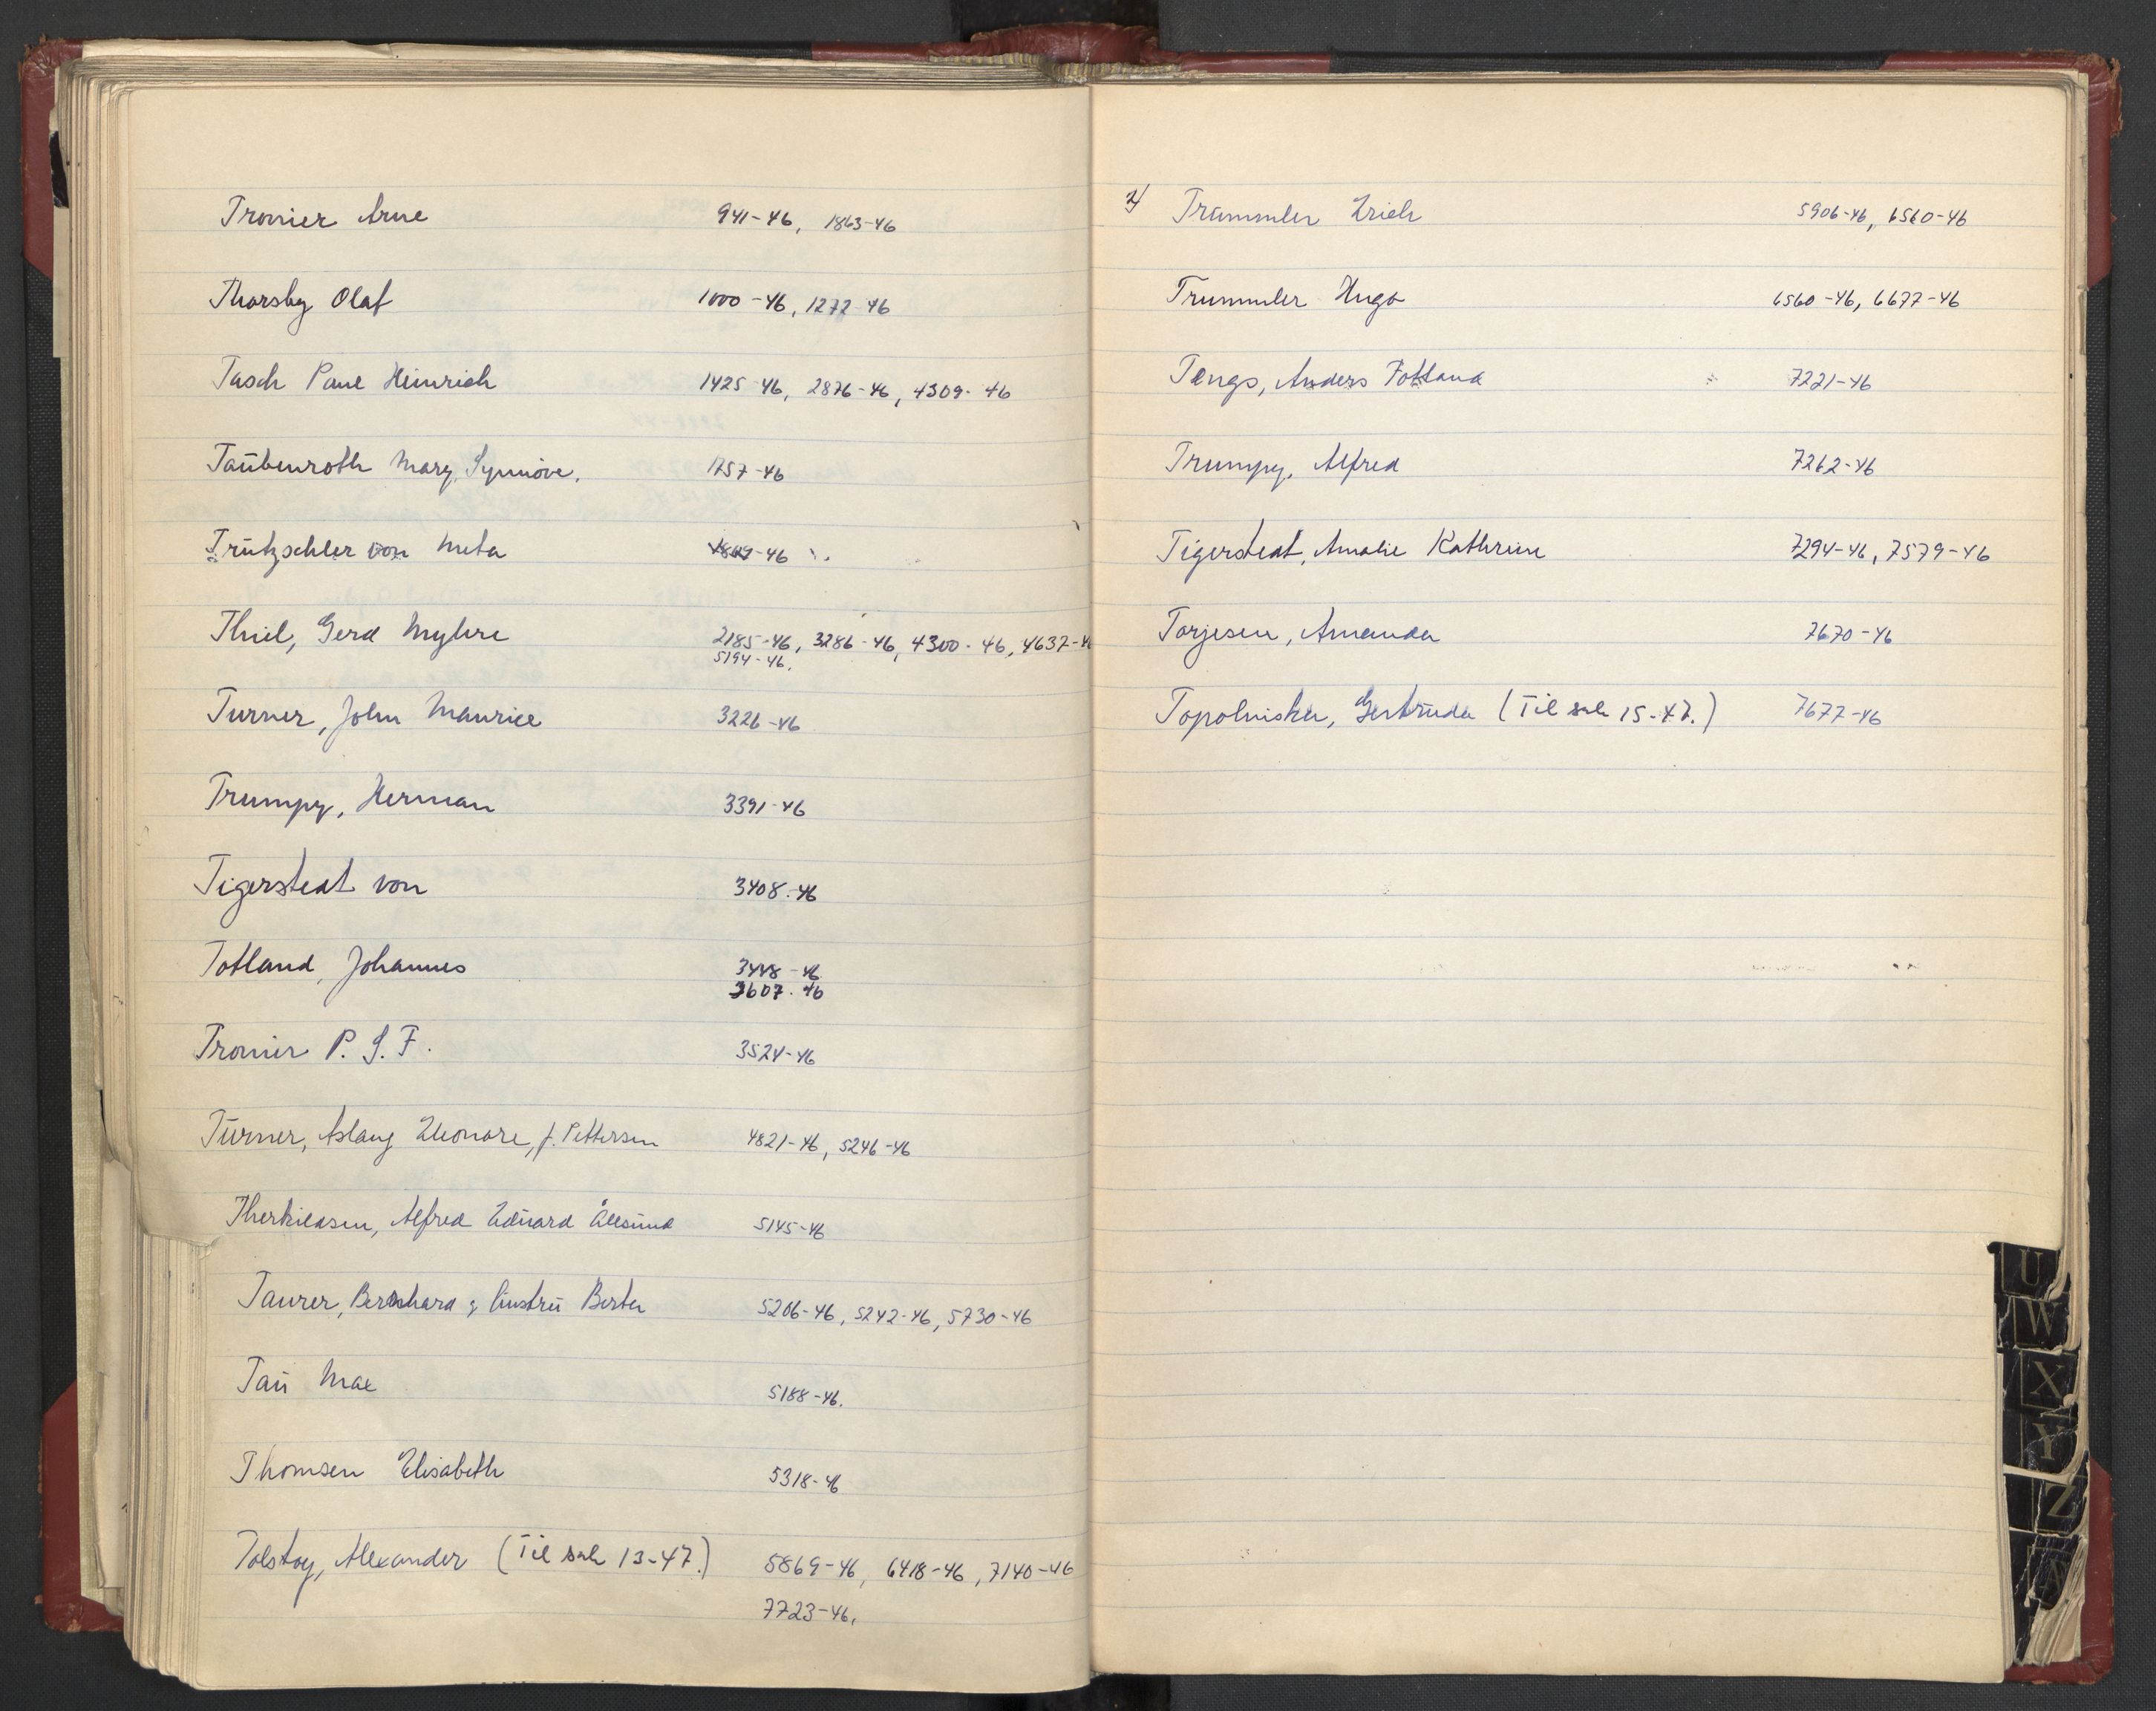 Tronier Arne 941-46, 1863-46
Thorsby Olaf 1000-46, 1272-46
Tasch Paul Heinrich 1425-46, 2876-46, 4309-46
Taubenroth Mary Synnöve. 1757-46
Trützschler von Meta 1849-46
Thiel, Gerd Myhre 2185-46, 3286-46, 4300-46, 4637-46
5194-46.
Turner, John Maurice 3226-46
Trumpy, Herman 3391-46
Tigerstedt von 3408-46
Totland, Johannes 3448-46
3607-46
Tronier P. S. F. 3524-46
Turner, Aslaug Eleonore, f. Pettersen 4821-46, 5246-46
Therkildsen, Alfred Eduard Ålesund 5145-46
Taurer, Bernhard & hustru Berta 5206-46, 5242-46, 5730-46
Tau Max 5188-46.
Thomsen Elisabeth 5318-46
Tolstoy, Alexander (Til sak 13-47.) 5869-46, 6418-46, 7140-46
7723-46.
2/ Trummler Erich 5906-46, 6560-46
Trummler Hugo 6560-46, 6677-46
Tengs, Anders Fotland 7221-46
Trumpy, Alfred 7262-46
Tigerstedt, Amalie Kathrine 7294-46, 7579-46
Torjesen, Amanda 7670-46
Topolniska, Gertruda (Til sak 15-47.) 7677-46
U
W
X
Y
Z